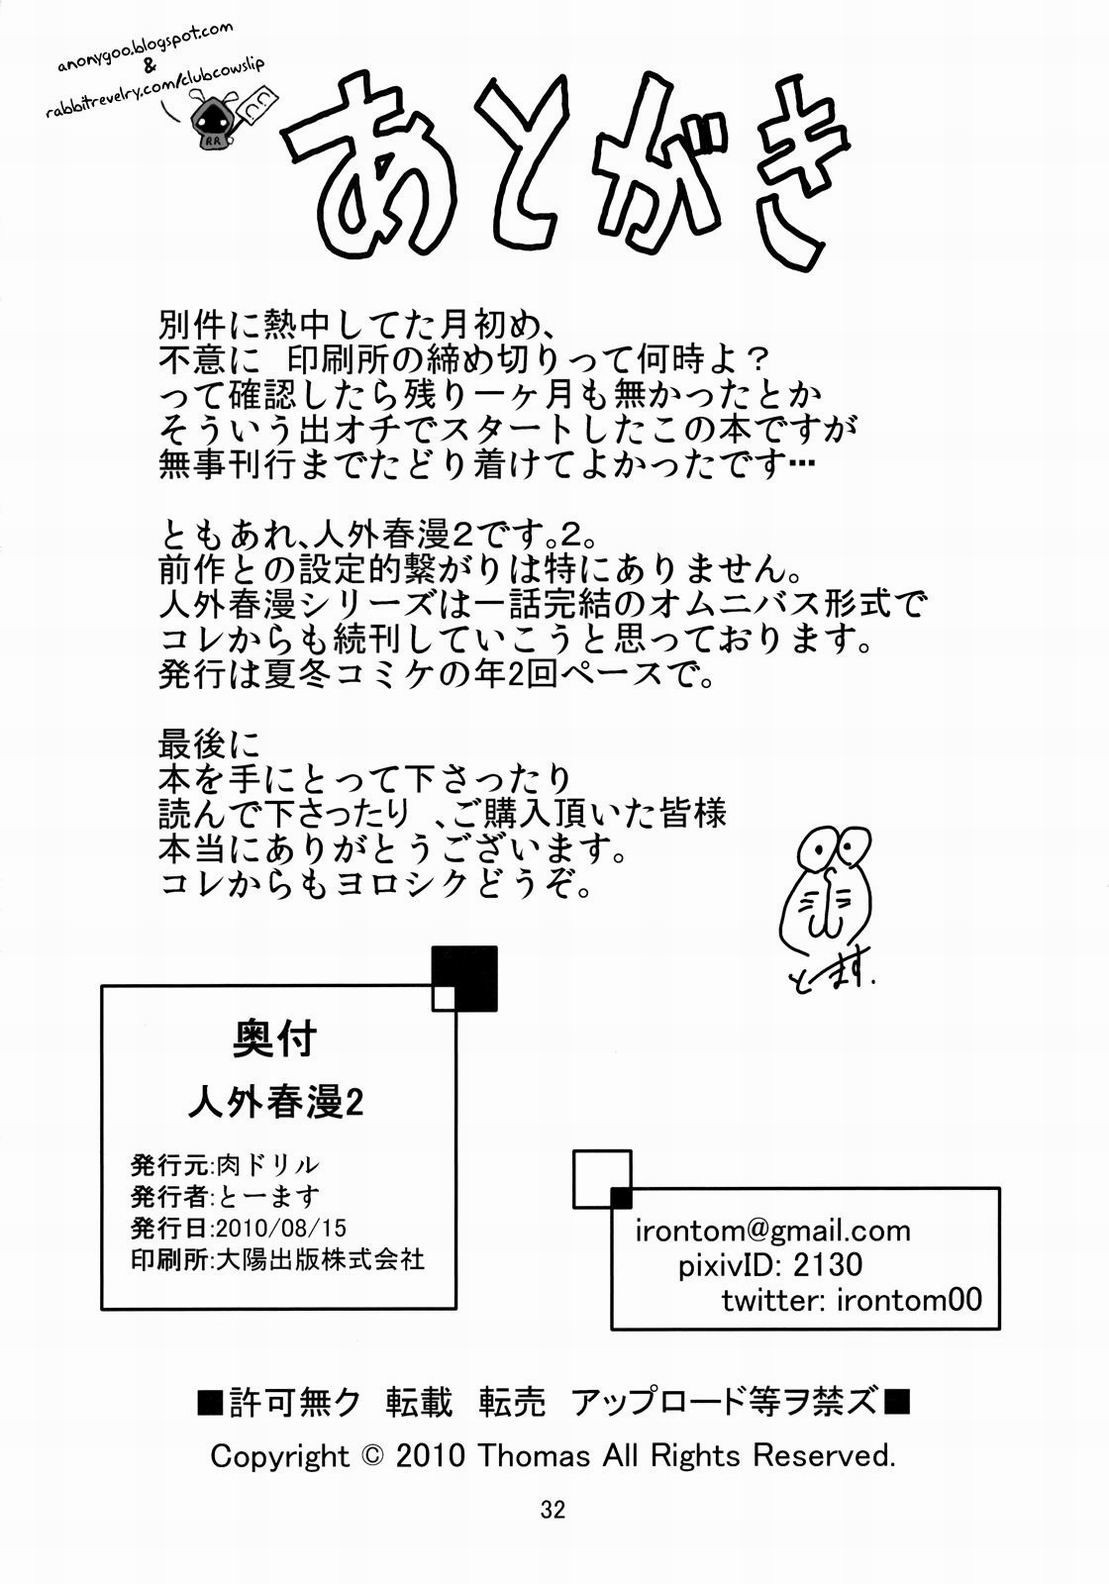 anonygoo.blogspot.com
&
rabbitrevelry.com/clubcowslip
RR
あとがき
別件に熱中してた月初め、
不意に　印刷所の締め切りって何時よ？
って確認したら残り一ヶ月も無かったとか
そういう出オチでスタートしたこの本ですが
無事刊行までたどり着けてよかったです…
ともあれ、人外春漫２です。２。
前作との設定的繋がりは特にありません。
人外春漫シリーズは一話完結のオムニバス形式で
コレからも続刊していこうと思っております。
発行は夏冬コミケの年2回ペースで。
最後に
本を手にとって下さったり
読んで下さったり　、ご購入頂いた皆様
本当にありがとうございます。
コレからもヨロシクどうぞ。
とーます.
奥付
人外春漫2
発行元:肉ドリル
発行者:とーます
発行日:2010/08/15
印刷所:大陽出版株式会社
irontom@gmail.com
pixivID: 2130
twitter: irontom00
■許可無ク　転載　転売　アップロード等ヲ禁ズ■
Copyright © 2010 Thomas All Rights Reserved.
32